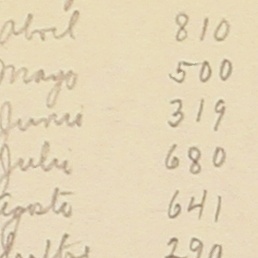 Abril 810
Mayo 500
Junio 319
Julio 680
Agosto 641
290